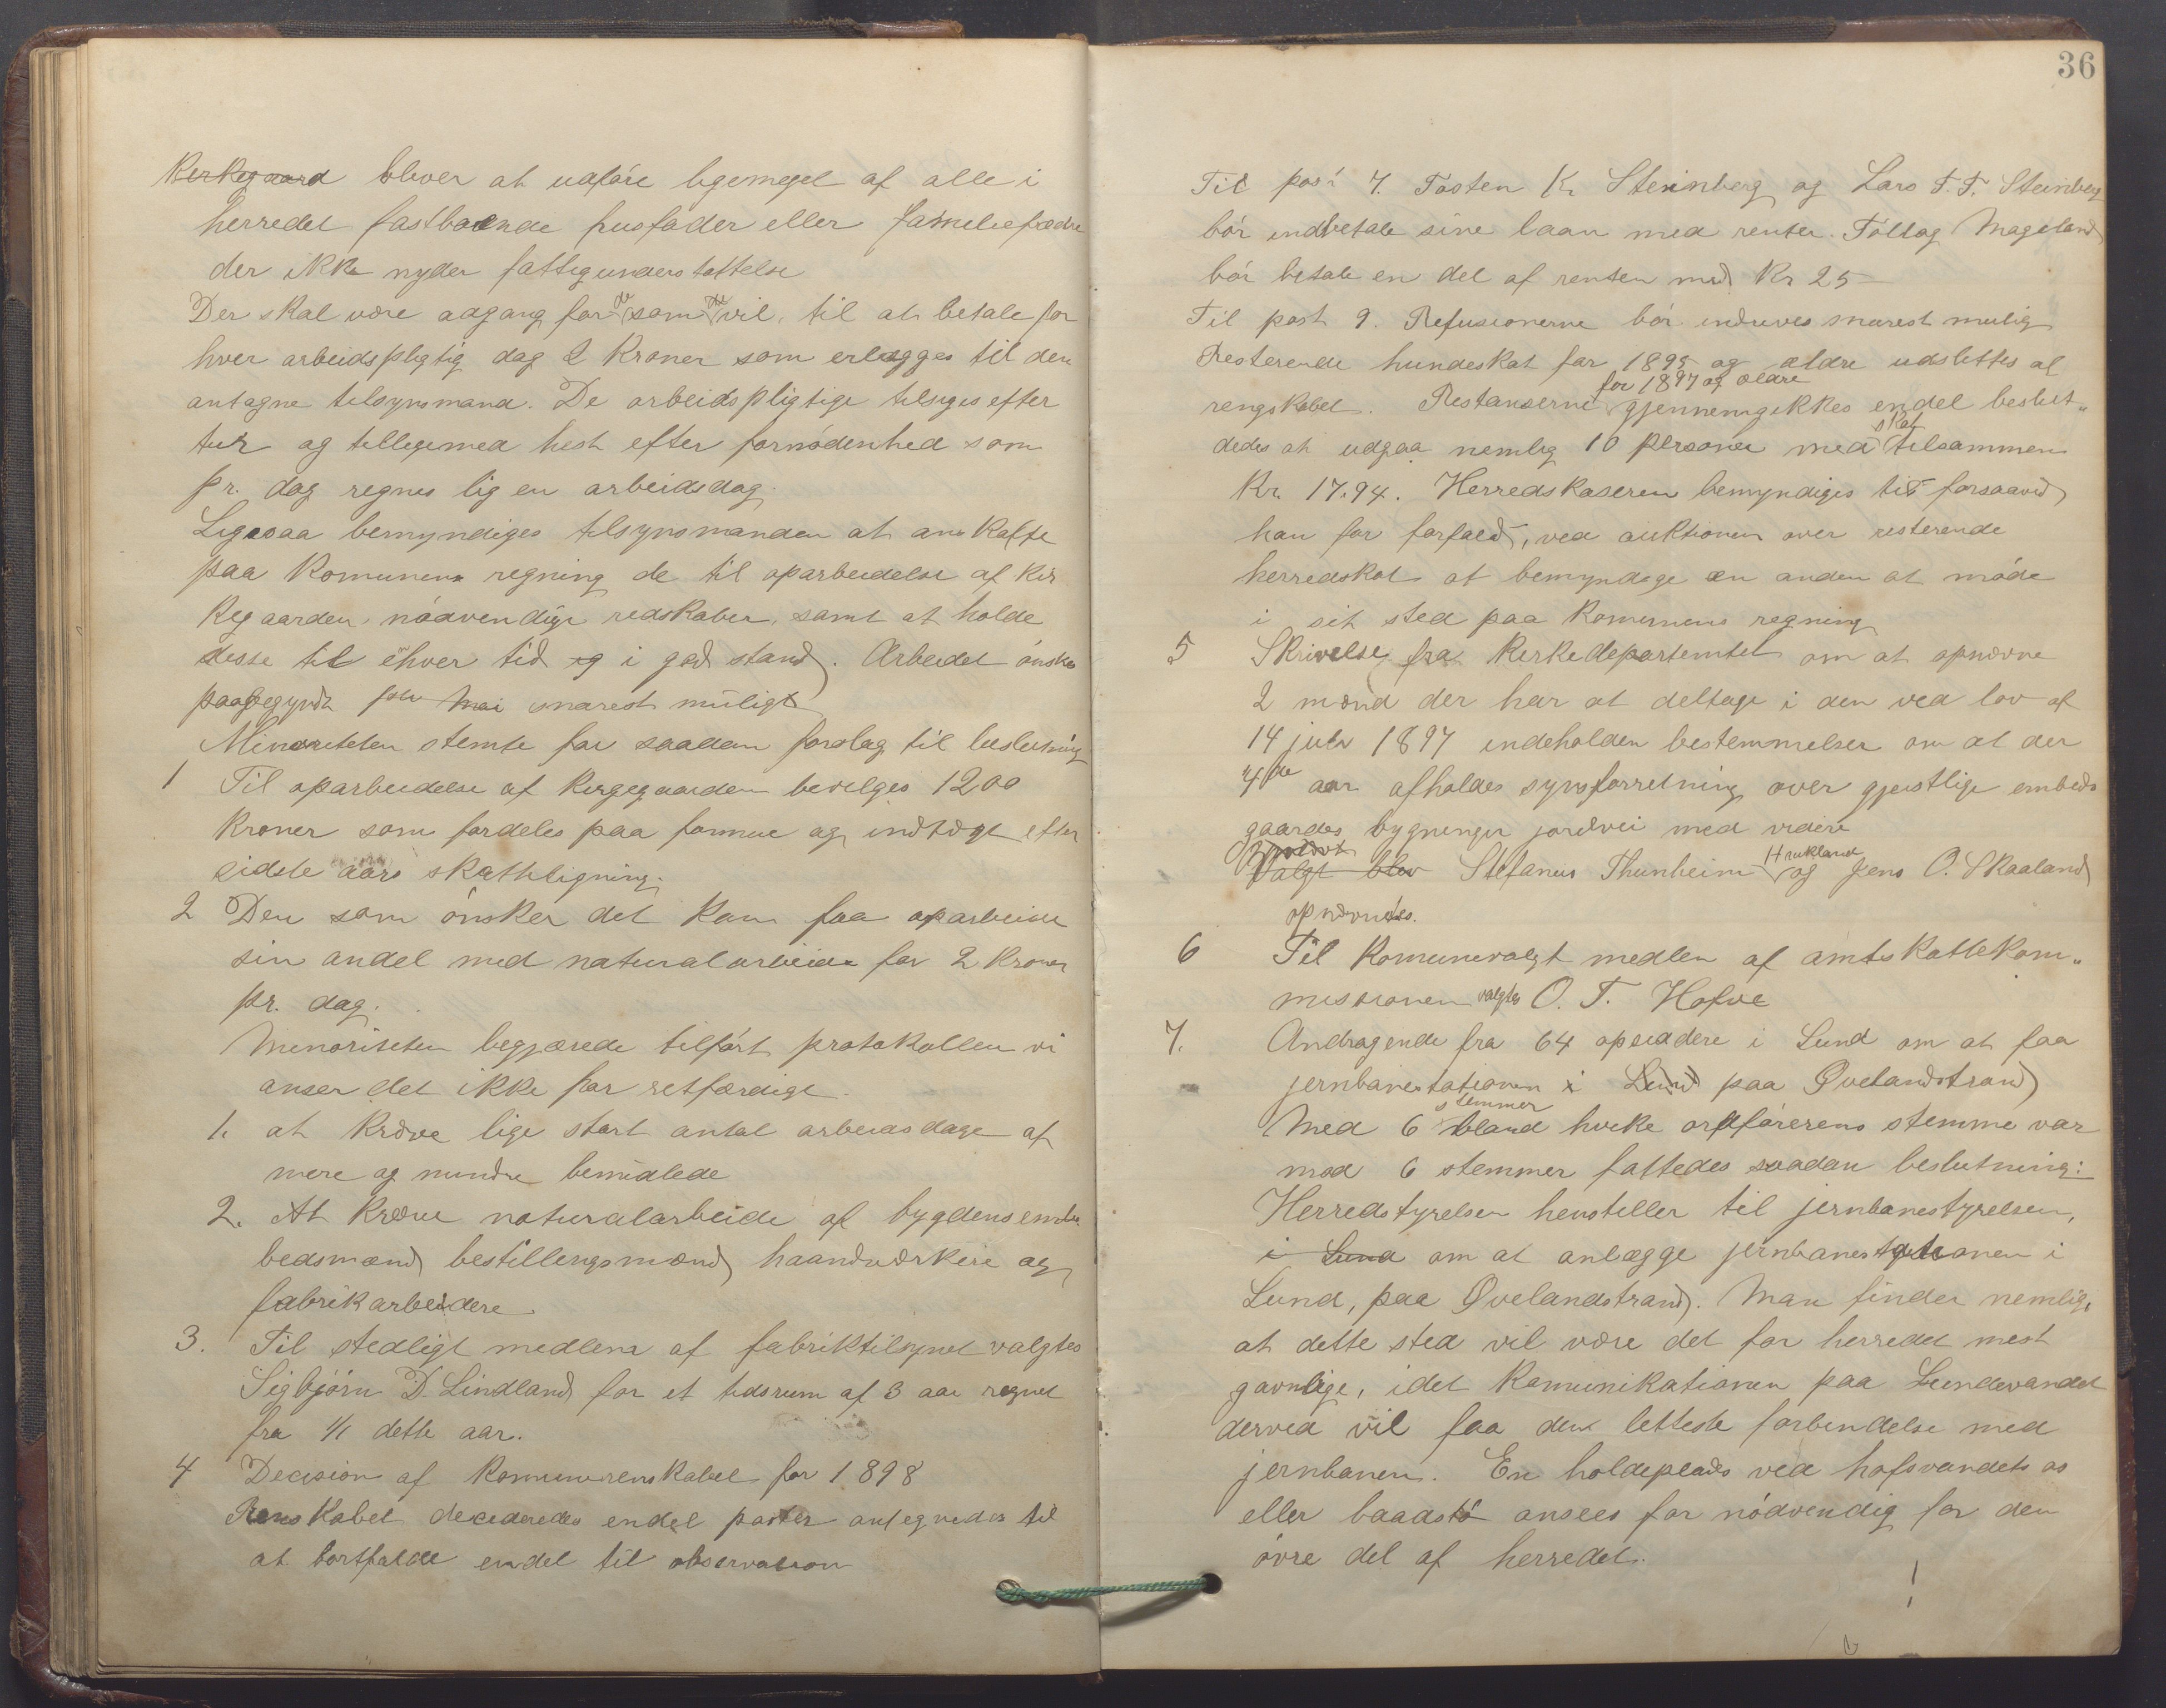 Kerkegaard bliver at udføre ligemeget af alle i
herredet fastboende husfader eller familiefædre
der ikke nyder fattigunderstøttelse
Der skal være adgang for de som de vil, til at betale for
hver arbeidspligtig dag 2 Kroner som erlægges til den
antagne tilsynsmand. De arbeidspligtige tilsiges efter
tur og tilligemed hest efter fornødenhed som
pr. dag regnes lig en arbeidsdag.
Ligesaa bemyndiges tilsynsmanden at anskaffe
paa Komunens regning de til oparbeidelse af Kir
Kegaarden nødvendige redskaber, samt at holde
disse til enhver tid og i god stand. Arbeidet ønskes
paabegyndt snarest muligt
Minoriteten stemte for saadan forslag til beslutning
1 Til oparbeidelse af Kergegaarden bevilges 1200
Kroner som fordeles paa formue og indtægt efter
sidste aars skatteligning.
2 Den som ønsker det kan faa oparbeide
sin andel med naturalarbeide for 2 Kroner
pr. dag.
Minoriteten begjærede tilført protokollen vi
anser det ikke for retfærdigt
1. at kræve lige stort antal arbeidsdage af
mere og mindre bemidlede
2. At kræve naturalarbeide af bygdens embe
bedsmænd bestillingsmænd haandværkere og
fabrikarbeidere.
3. Til stedligt medlem af fabriktilsynet valgtes
Sigbjørn D. Lindland for et tidsrum af 3 aar regnet
fra 1/1 dette aar.
4 Decision af Komunerenskabet for 1898
Renskabet decideredes endel poster antegnedes til
at bortfalde endel til observation
36
Til post 7. Tosten K. Steinberg og Lars T. T. Steinberg
bør indbetale sine laan med renter. Tollag Mageland
bør betale en del af renten med Kr 25 —
Til post 9. Refusionerne bør indrives snarest mulig
Resterende hundeskat for 1895 og ældre udslettes af
for 1897 og ældre
rengskabet. Restanserne gjennemgikkes endel beslut„
skat
dedes at udgaa nemlig 10 personer med tilsammen
Kr. 17.94. Herredskaseren bemyndiges til forsaavid
han for forfald, ved auktionen over resterende
herredskat at bemyndige en anden at møde
i sit sted paa Komunens regning
5 Skrivelse fra Kerkedepartemtet om at opnævne
2 mænd der har at deltage i den ved lov af
14 juli 1897 indeholden bestemmelser om at der
4de aar afholdes synsforretning over gjeistlige embeds
gaardes bygninger jordvei med videre
Hrukland
Valgt blev Stefanus Thunheim og Jens O. Skaaland
opnævnedes.
6 Til Komunevalgt medlem af amtskattekom„
missionen valgtes O. T. Hofve
7. Andragende fra 64 opsiddere i Lund om at faa
jernbanestationen i Lund paa Øvelandstrand
stemmer
Med 6 bland hvilke ordførerens stemme var
mod 6 stemmer fattedes saadan beslutning:
Herredstyrelsen henstiller til jernbanestyrelsen,
i Lund om at anlægge jernbanestationen i
Lund, paa Øvelandstrand. Man finder nemlig,
at dette sted vil være det for herredet mest
gavnlige, idet Komunikationen paa Lundevandet
derved vil faa den letteste forbindelse med
jernbanen. En holdeplads ved hofsvandets os
eller baadstø ansees for nødvendig for den
øvre del af herredet.